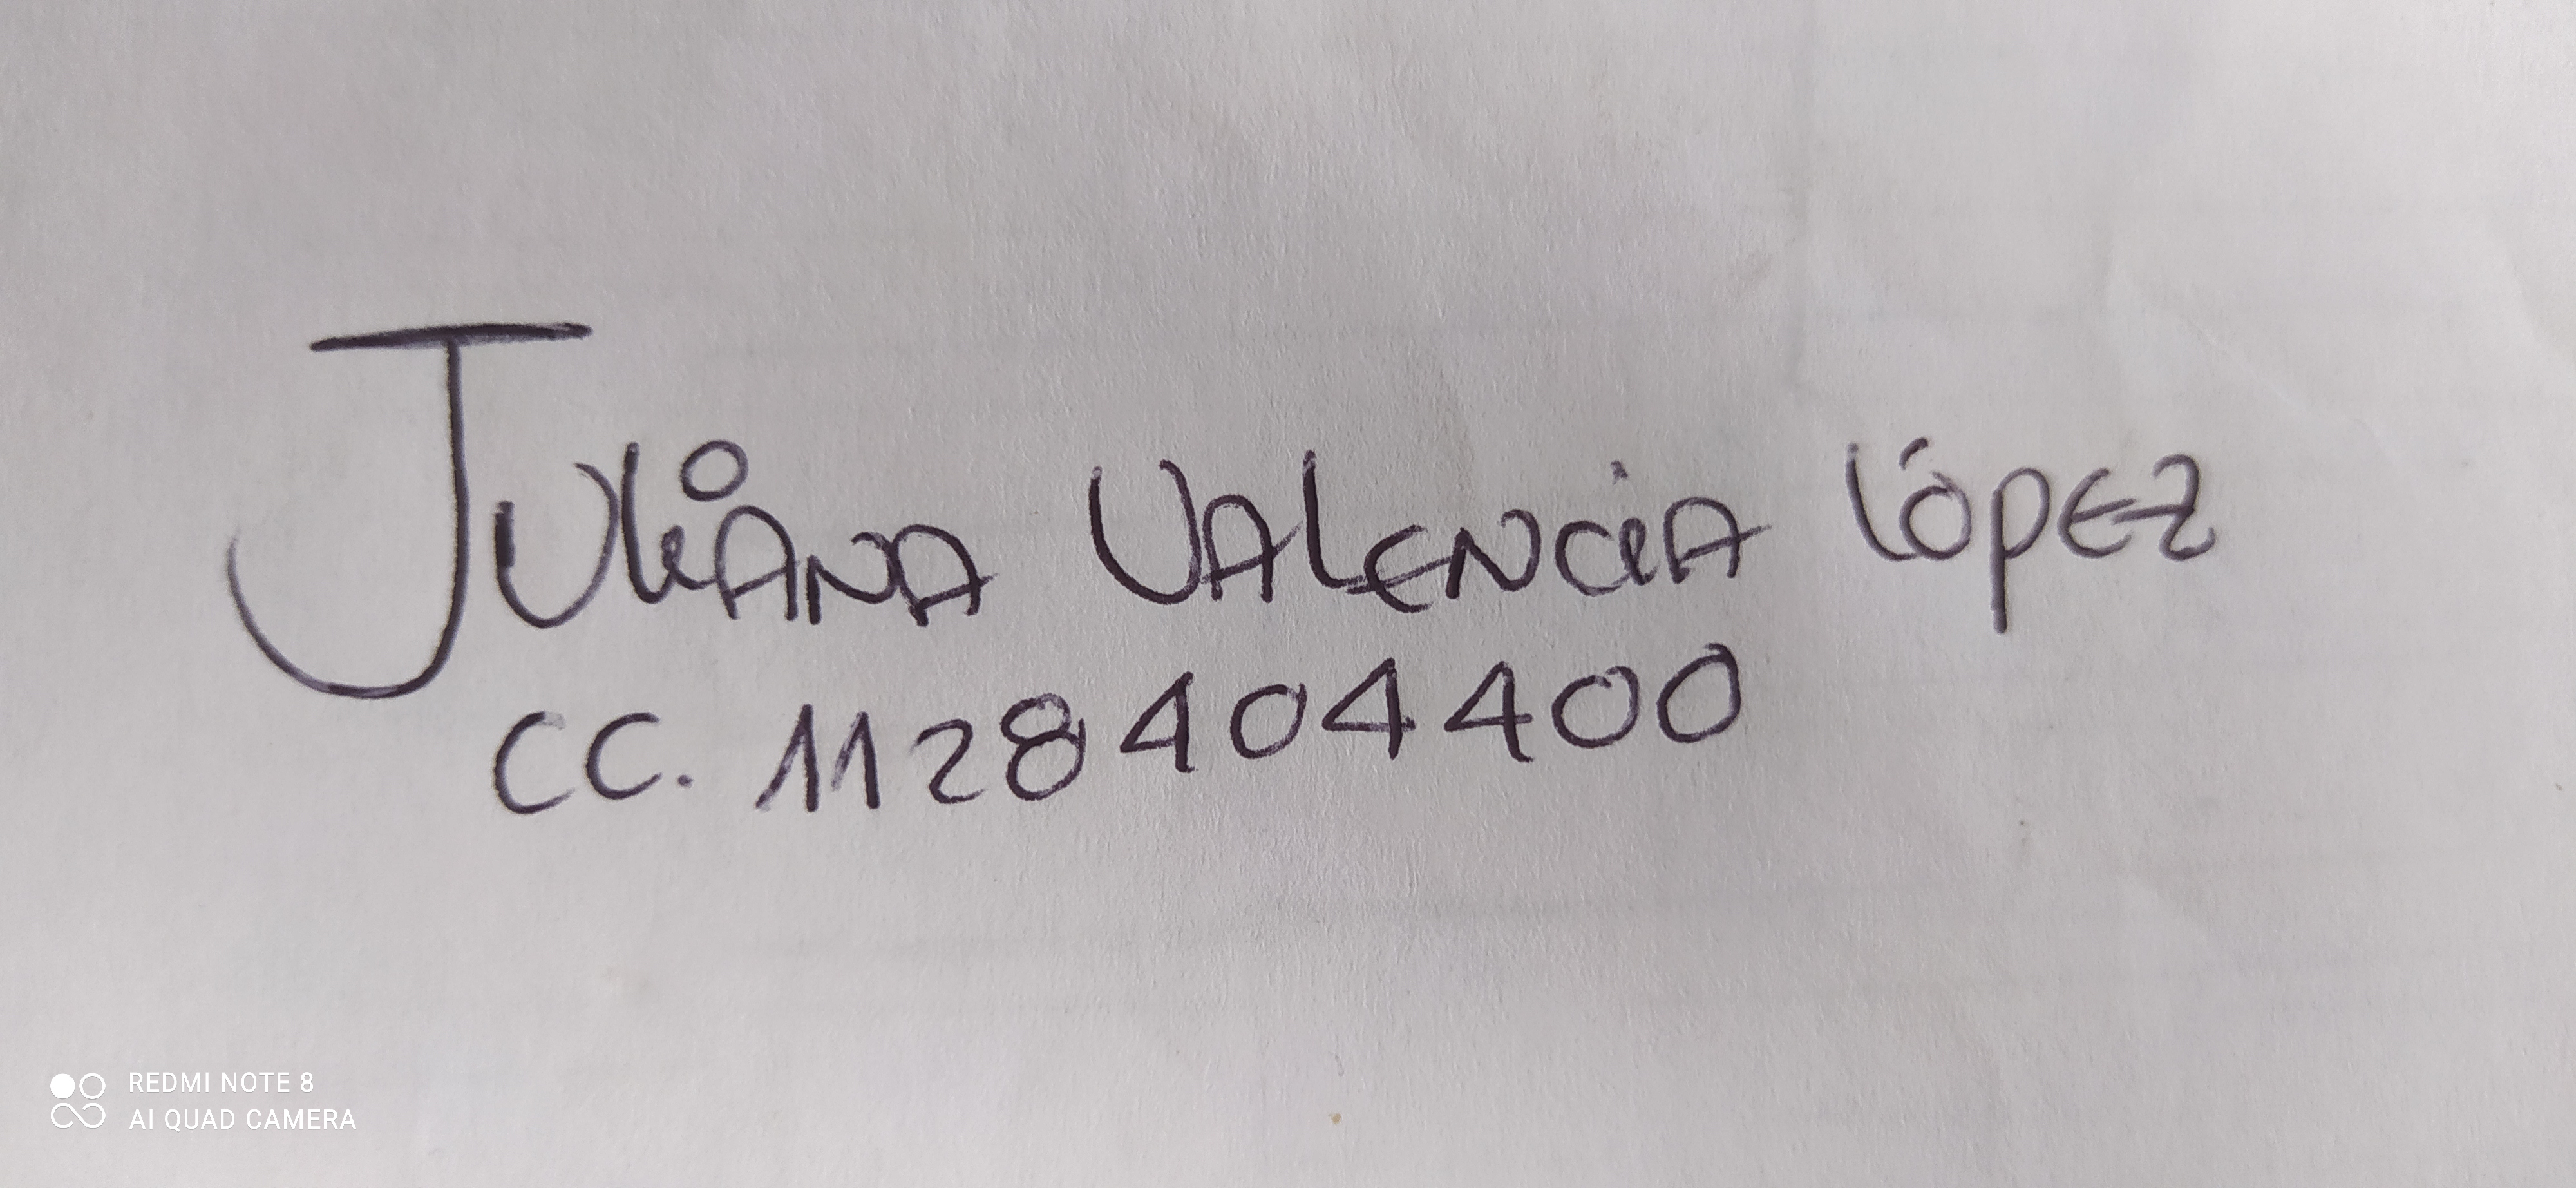 Juliana Valencia López
CC. 1128404400
REDMI NOTE 8
AI QUAD CAMERA